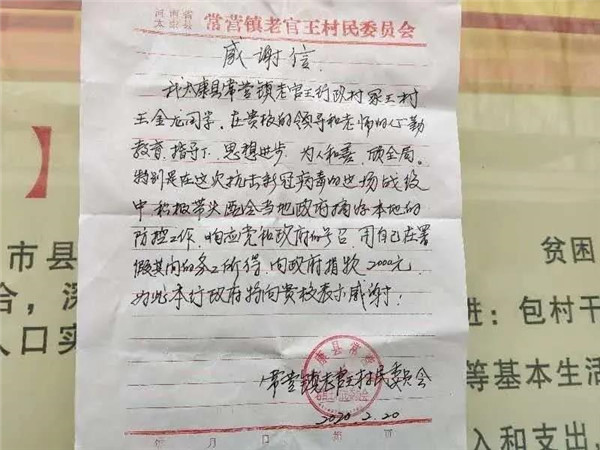 河南省
太康县
常营镇老官王村民委员会
感谢信
我太康县常营镇老官王行政村冢王村
王金龙同学,在贵校的领导和老师的心勤
教育、指导下,思想进步,为人和善,顾全局。
特别是在这次抗击新冠病毒的这场战役
中积极带头配合当地政府搞好本地的
防控工作,响应党和政府的号召,用自己在署
假其间的务工所得,向政府捐款2000元,
为此本行政府特向贵校表示感谢!
康县常营
常营镇老官王村民委员会
2020.2.20
年 月 日 第 页
】
市县
合,深
人口实
贫困
进:包村干
等基本生活
入和支出,